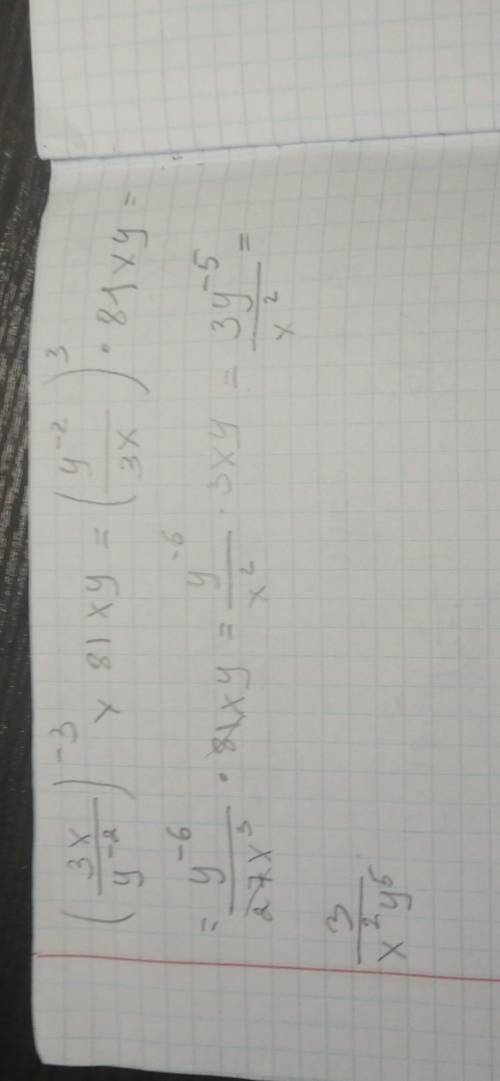 (3x/y⁻²)⁻³ × 81xy = (y⁻²/3x)³ · 81xy =
= y⁻⁶/27x³ · 81xy = y⁻⁶/x² · 3xy = 3y⁻⁵/x² =
3/x²y⁵